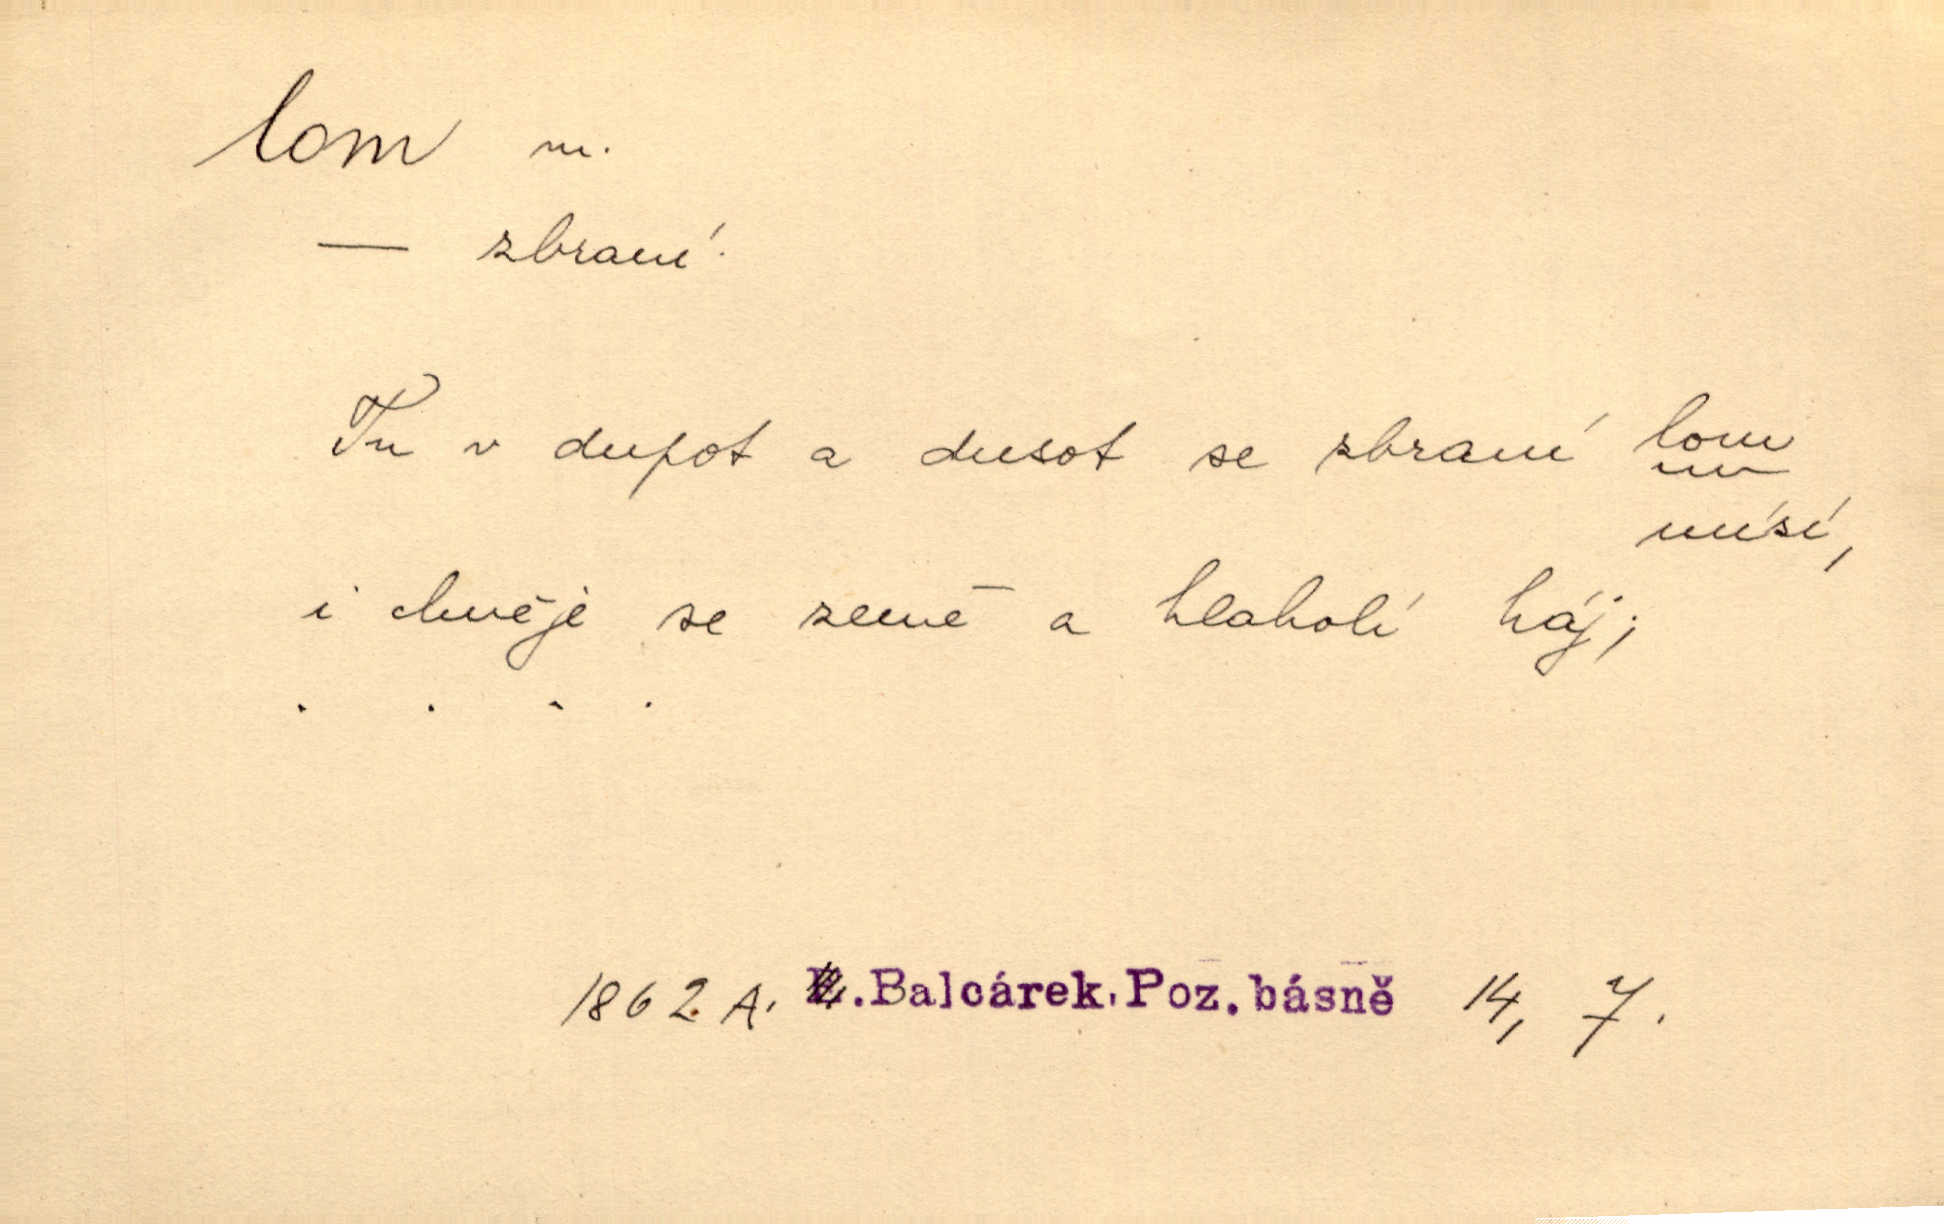 lom m.
— zbraní.
Tu v dupot a dusot se zbraní lom
mísí,
i chvěje se země a hlaholí háj;
. . . .
1862 A. .Balcárek, Poz. básně 14, 7.